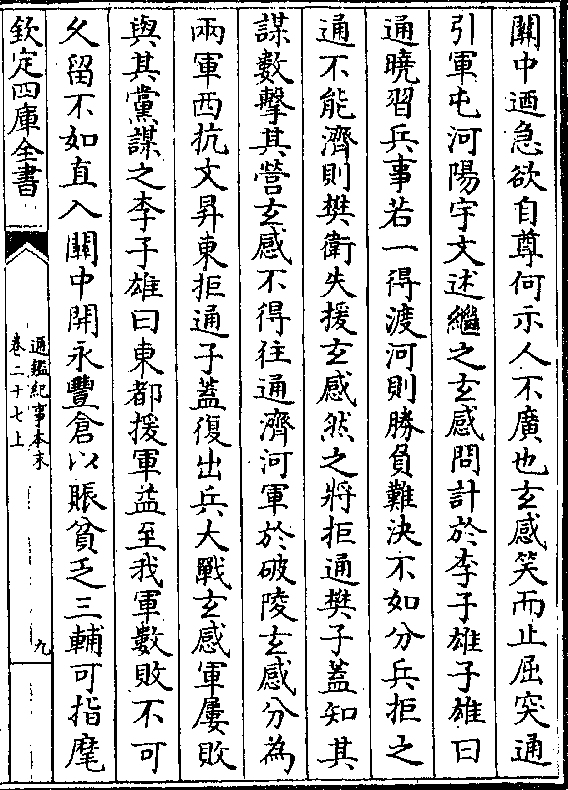 關中迺急欲自尊何示人不廣也玄感笑而止屈突通
引軍屯河陽宇文述繼之玄感問計於李子雄子雄曰
通曉習兵事若一得渡河則勝負難決不如分兵拒之
通不能濟則樊衛失援玄感然之將拒通樊子蓋知其
謀數擊其營玄感不得往通濟河軍於破陵玄感分為
兩軍西抗文昇東拒通子蓋復出兵大戰玄感軍屢敗
與其黨謀之李子雄曰東都援軍益至我軍數敗不可
久留不如直入關中開永豐倉以賑貧乏三輔可指麾
欽定四庫全書
通鑑紀事本末
卷二十七上
九